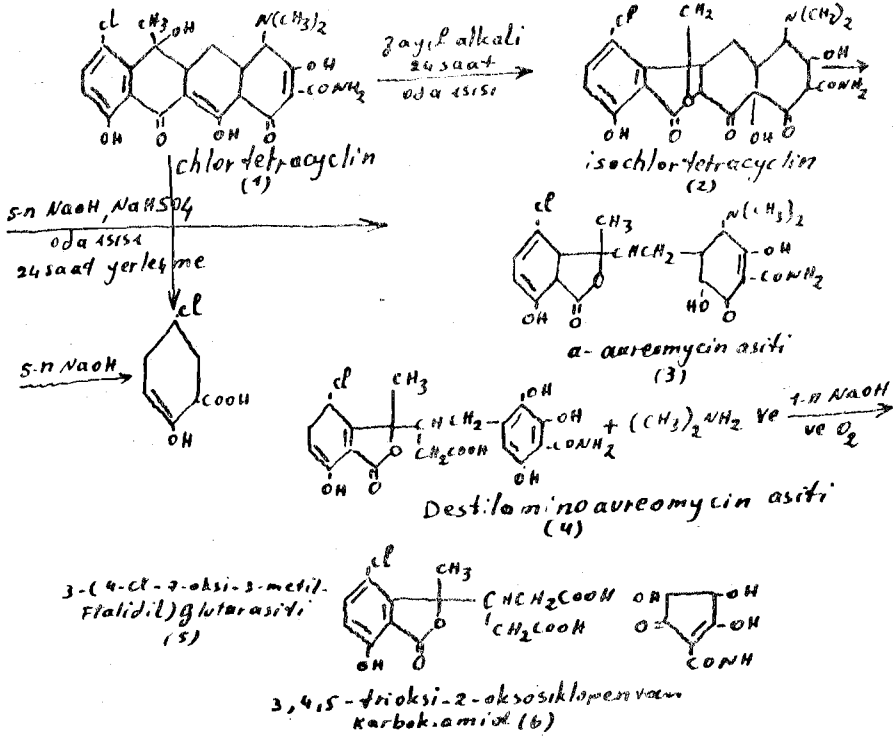 cl
CH3 OH
N(CH3)2
OH
CONH2
OH
O
OH
O
chlortetracyclin
(1)
zayıf alkali
24 saat
oda ısısı
cl
CH2
N(CH3)2
OH
CONH2
OH
O
O
OH
O
isochlortetracyclin
(2)
5-n NaOH, NaHSO4
oda ısısı
24 saat yerleşme
cl
CH3
CHCH2
N(CH3)2
OH
CONH2
O
OH
O
HO
O
α-aureomycin asiti
(3)
5-n NaOH
cl
COOH
OH
cl
CH3
CHCH2
CH2COOH
O
OH
O
OH
OH
CONH2
OH
+ (CH3)2NH2 ve
1-n NaOH
ve O2
Destilaminoaureomycin asiti
(4)
3-(4-cl-7-oksi-3-metil-
Ftalidil)glutarasiti
(5)
cl
CH3
CHCH2COOH
CH2COOH
O
OH
O
OH
OH
O
OH
CONH
3,4,5-trioksi-2-oksosiklopenvan
karboksamid (6)